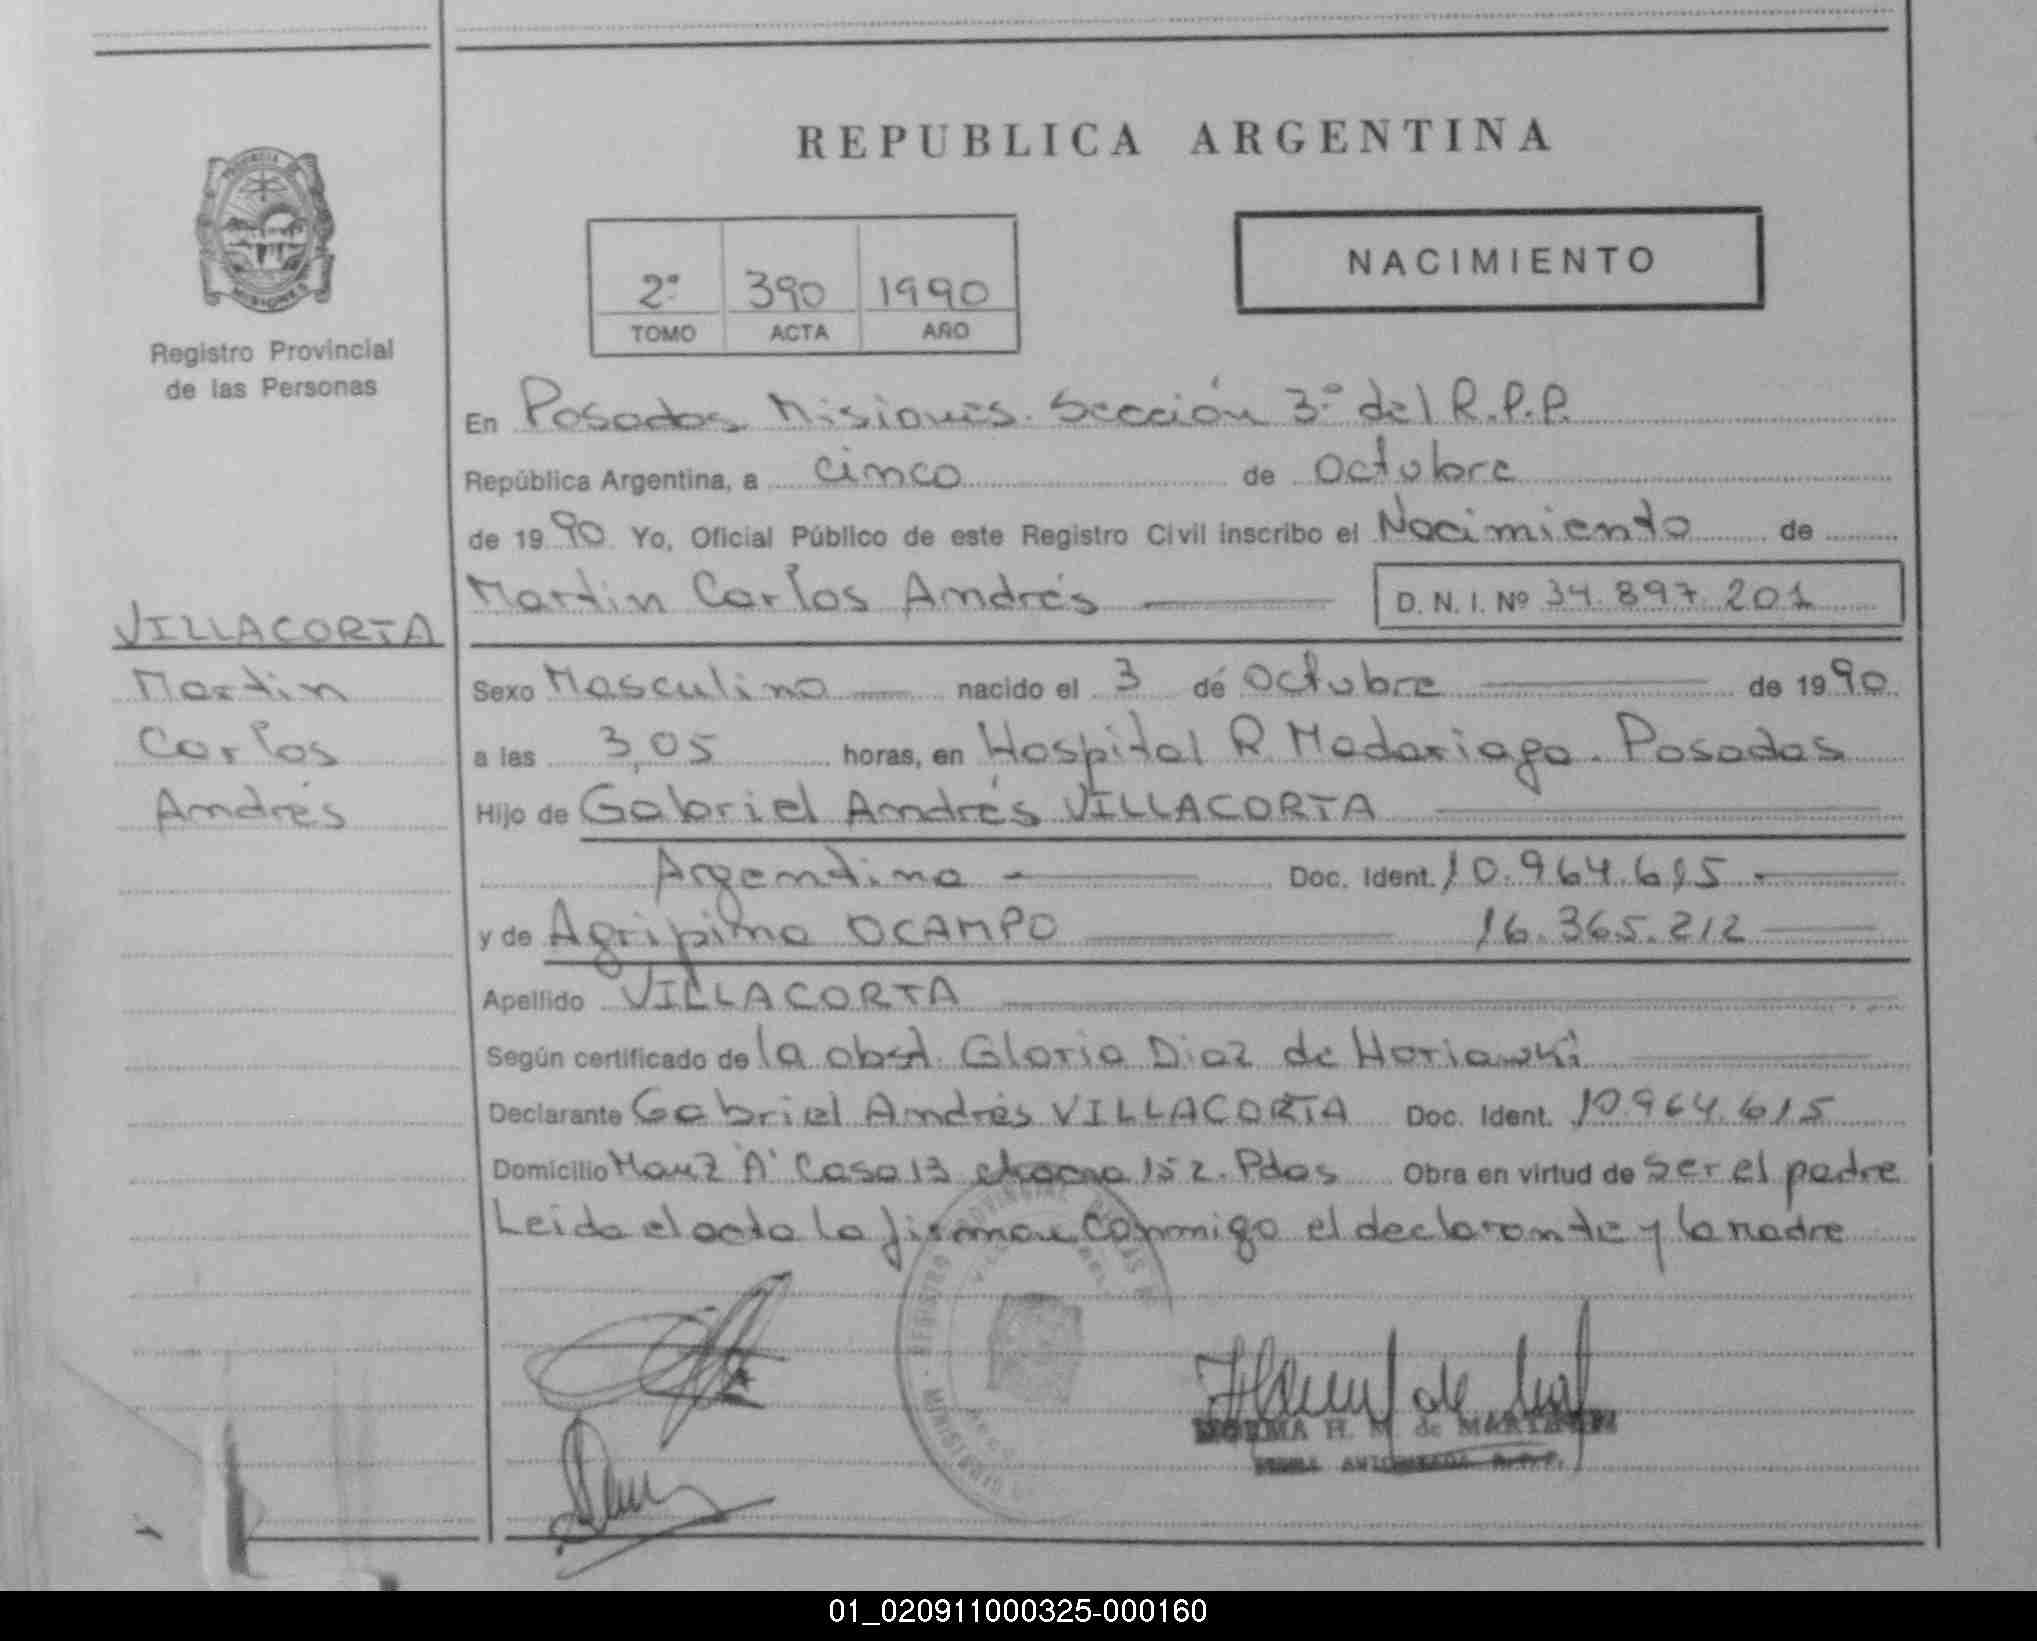 REPUBLICA ARGENTINA
PROVINCIA
MISIONES
Registro Provincial
de las Personas
2º 390 1990
TOMO ACTA AÑO
NACIMIENTO
En Posadas Misiones. Sección 3º del R.P.P.
República Argentina, a cinco de Octubre
de 1990 Yo, Oficial Público de este Registro Civil inscribo el Nacimiento de
Martin Carlos Andrés D. N. I. Nº 34.897.201
VILLACORTA
Martin
Carlos
Andrés
Sexo Masculino nacido el 3 de Octubre de 1990
a las 3,05 horas, en Hospital R. Madariaga. Posadas
Hijo de Gabriel Andrés VILLACORTA
Argentino Doc. Ident. 10.964.615
y de Agripina OCAMPO 16.365.212
Apellido VILLACORTA
Según certificado de la obst. Gloria Diaz de
Declarante Gabriel Andrés VILLACORTA Doc. Ident. 10.964.615
Domicilio Manz "A" Casa 13 chacra 152. Pdas Obra en virtud de ser el padre
Leida el acta la firman conmigo el declarante y la madre
NORMA H. M. de
01_020911000325-000160